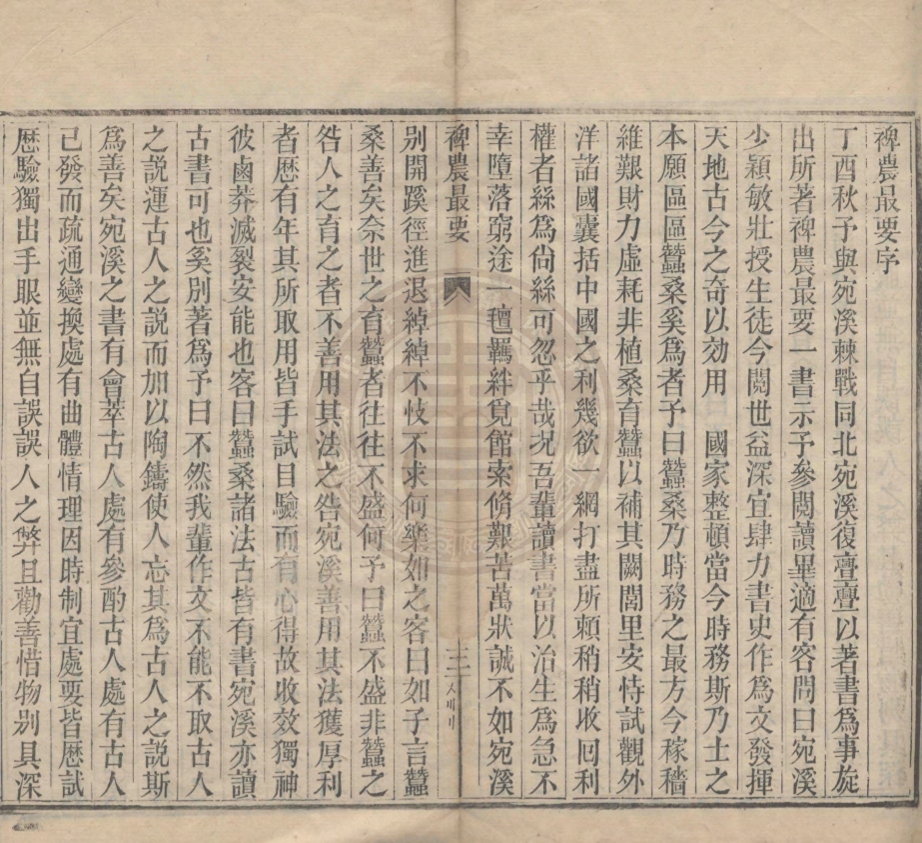 裨農最要序
丁酉秋予與宛溪棘戰同北宛溪復亹亹以著書爲事旋
出所著裨農最要一書示予參閱讀畢適有客問曰宛溪
少穎敏壯授生徒今閱世益深宜肆力書史作爲文發揮
天地古今之奇以効用 國家整頓當今時務斯乃士之
本願區區蠶桑奚爲者予曰蠶桑乃時務之最方今稼穡
維艱財力虛耗非植桑育蠶以補其闕閭里安恃試觀外
洋諸國囊括中國之利幾欲一網打盡所頼稍稍收回利
權者絲爲尙絲可忽乎哉况吾輩讀書當以治生爲急不
幸墮落窮途一氊羈絆覓館索脩艱苦萬狀誠不如宛溪
裨農最要
別開蹊徑進退綽綽不忮不求何樂如之客曰如子言蠶
桑善矣奈世之育蠶者往往不盛何予曰蠶不盛非蠶之
咎人之育之者不善用其法之咎宛溪善用其法獲厚利
者歷有年其所取用皆手試目驗而有心得故收效獨神
彼鹵莽滅裂安能也客曰蠶桑諸法古皆有書宛溪亦讀
古書可也奚別著爲予曰不然我輩作文不能不取古人
之說運古人之說而加以陶鑄使人忘其爲古人之說斯
爲善矣宛溪之書有會萃古人處有參酌古人處有古人
已發而疏通變換處有曲體情理因時制宜處要皆歷試
歷驗獨出手眼並無自誤誤人之弊且勸善惜物別具深